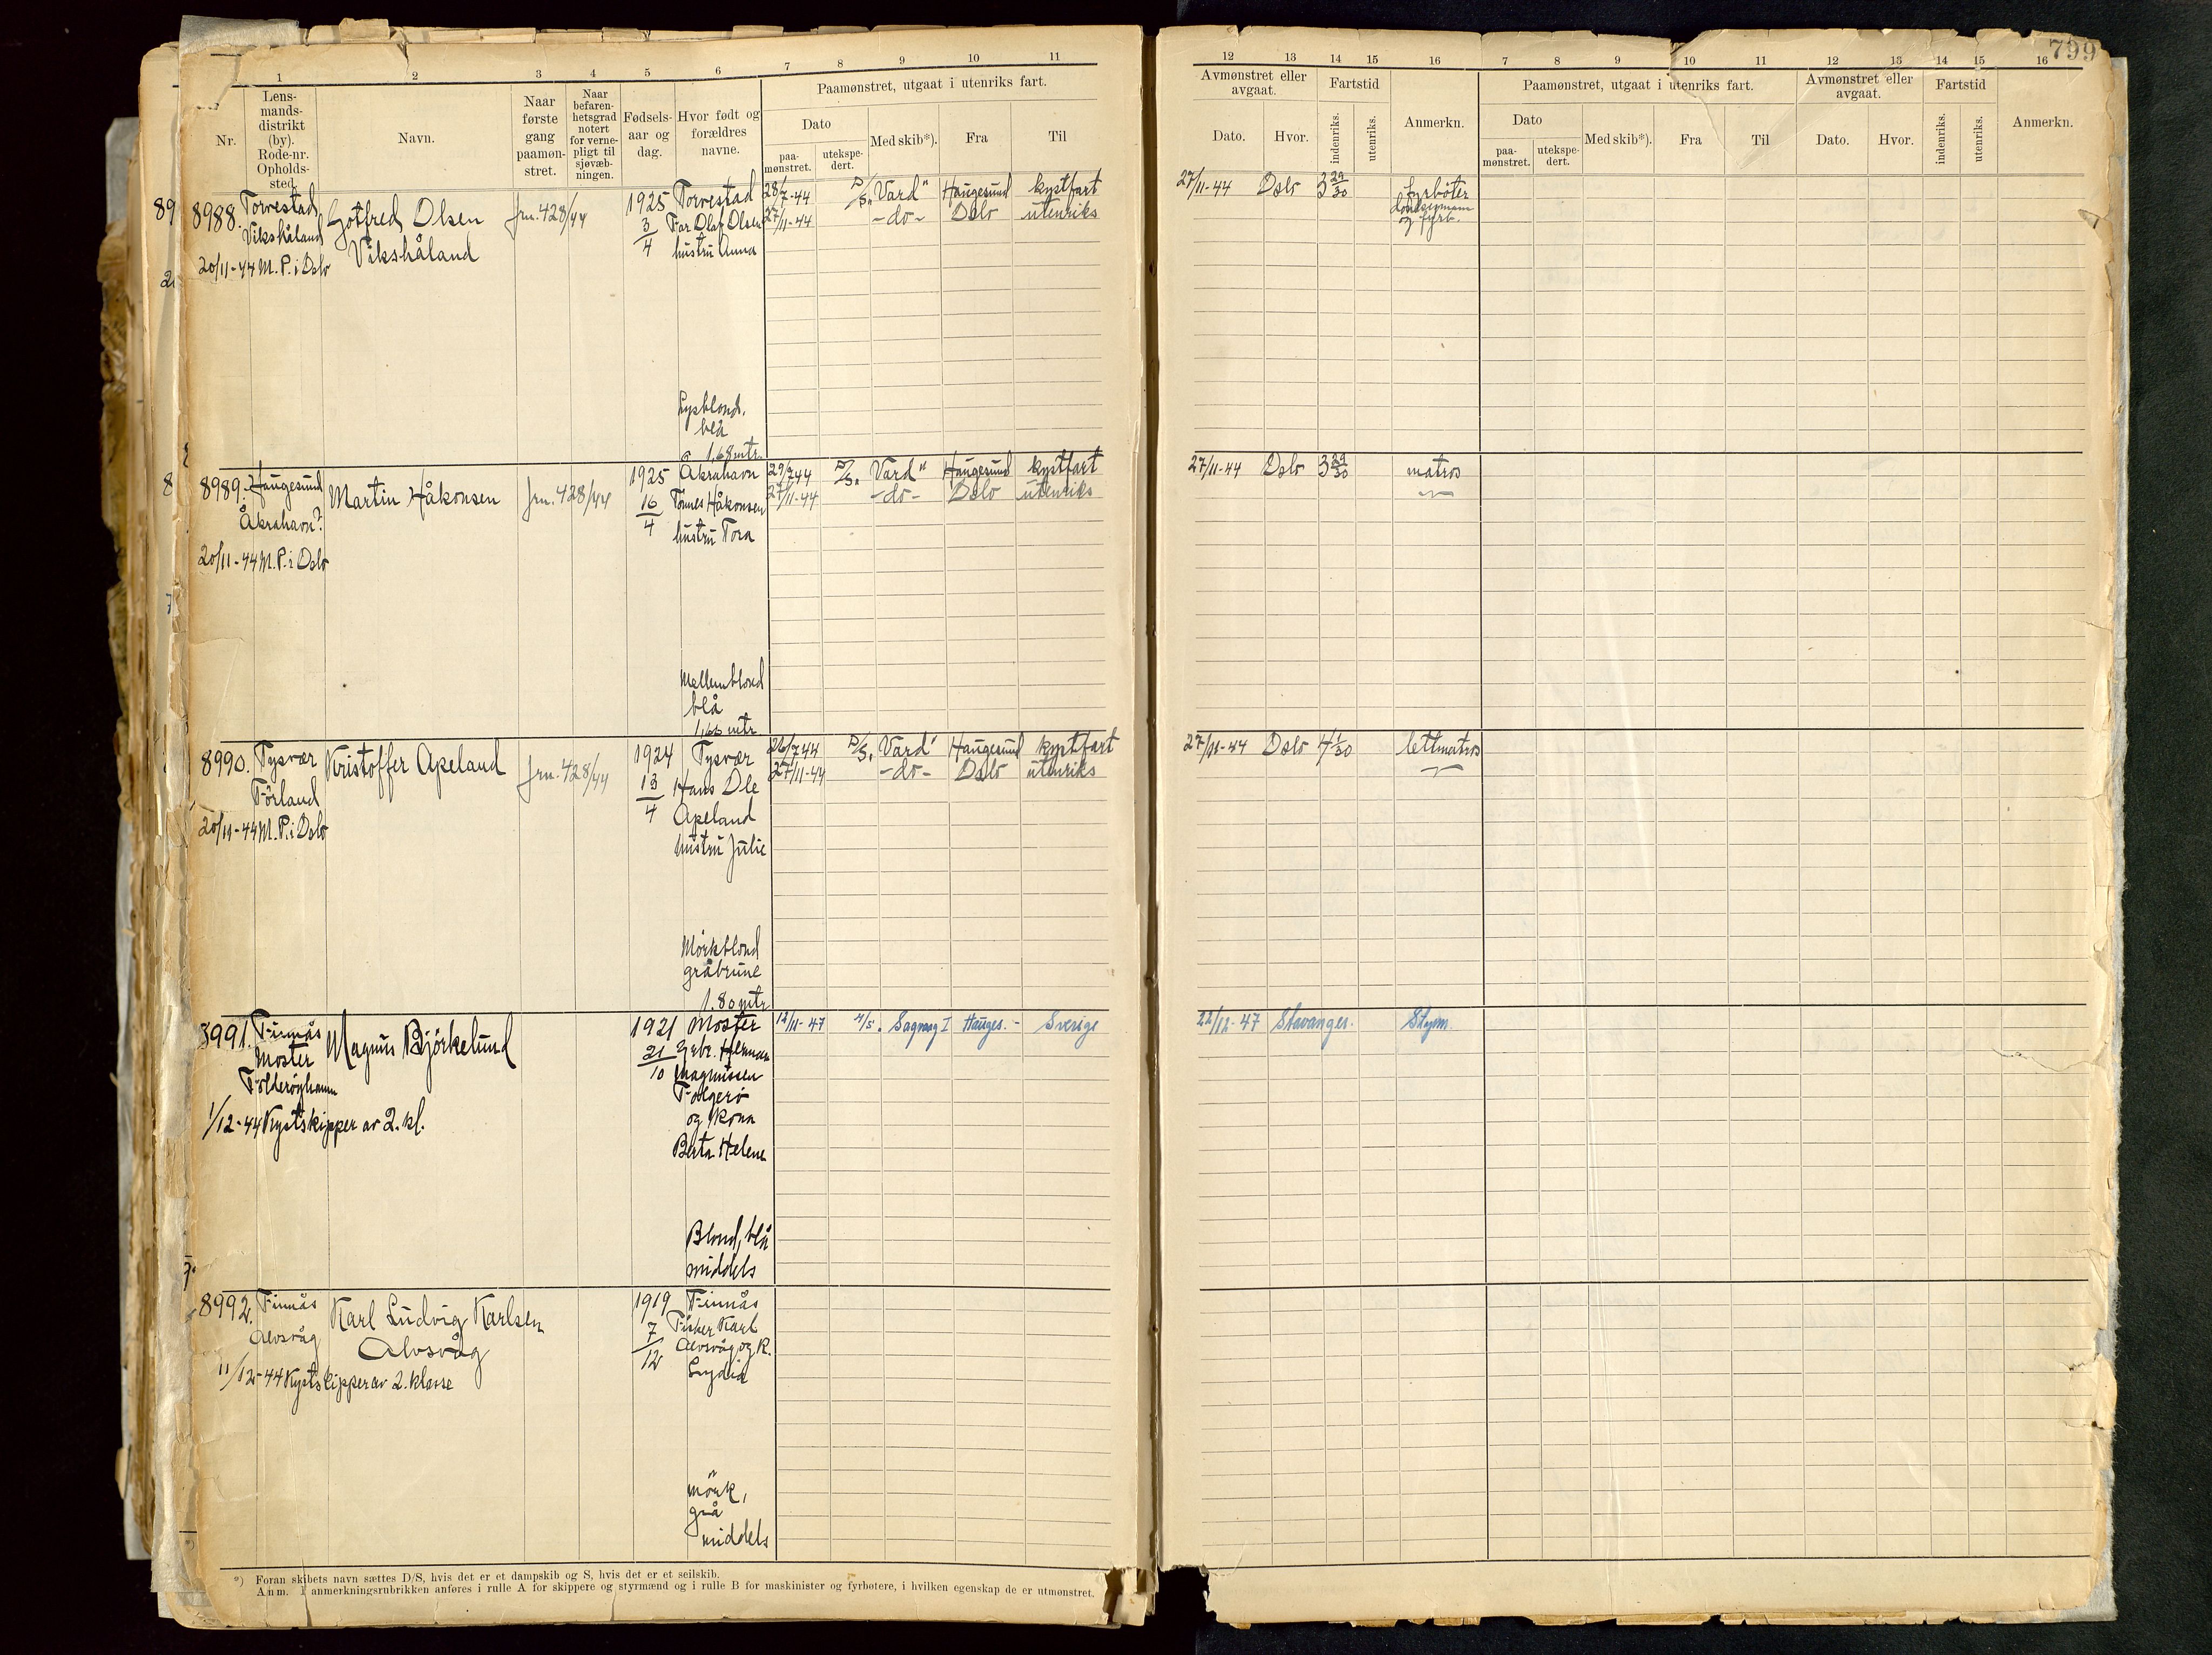 799
1 2 3 4 5 6 7 8 9 10 11
12 13 14 15 16 7 8 9 10 11 12 13 14 15 16
Nr.
Lens-
mands-
distrikt
(by).
Rode-nr.
Opholds-
sted.
Navn.
Naar
første
gang
paamøn-
stret.
Naar
befaren-
hetsgrad
notert
for verne-
pligt til
sjøvæb-
ningen.
Fødsels-
aar og
dag.
Hvor født og
forældres
navne.
Paamønstret, utgaat i utenriks fart.
Dato
paa-
mønstret.
utekspe-
dert.
Med skib*).
Fra
Til
Avmønstret eller
avgaat.
Dato.
Hvor.
Fartstid
indenriks.
utenriks.
Anmerkn.
Paamønstret, utgaat i utenriks fart.
Dato
paa-
mønstret.
utekspe-
dert.
Med skib*).
Fra
Til
Avmønstret eller
avgaat.
Dato.
Hvor.
Fartstid
indenriks.
utenriks.
Anmerkn.
8988.
Torvestad
Vikshåland
20/11-44 M.P. i Oslo
Gotfred Olsen
Vikshåland
jrn. 428/44
1925
3/4
Torvestad
Far Olaf Olsen
hustru Anna
Lysblond,
blå
1,68 mtr.
28/7-44 D/S. "Vard" Haugesund kystfart
27/11-44 -do- Oslo utenriks
27/11-44 Oslo 3 29/30 fyrbøter
og fyrb.
8989.
Haugesund
Åkrahavn?
20/11-44 M.P. i Oslo
Martin Håkonsen
jrn. 428/44
1925
16/4
Åkrahavn
Tønnes Håkonsen
hustru Tora
Mellemblond
blå
1,66 mtr
29/7 44 D/S. Vard" Haugesund kystfart
27/11-44 -do- Oslo utenriks
27/11-44 Oslo 3 29/30 matros
8990.
Tysvær
Førland
20/11-44 M.P. i Oslo
Kristoffer Apeland
jrn. 428/44
1924
13/4
Tysvær
Hans Ole
Apeland
hustru Julie
Mørkblond
gråbrune
1.80 mtr
26/7 44 D/S. Vard" Haugesund kystfart
27/11-44 -do- Oslo utenriks
27/11-44 Oslo 4 1/30 lettmatros
8991.
Finnås
Moster
1/12-44 Kystskipper av 2. kl.
Magnus Bjørkelund
1921
21/10
Moster
Grbr. Herman
Magnussen
Følgerø
og kona
Berta Helene
Blond, blå
middels
12/11-47 M/S. Sagvaag I Hauges.- Sverige
22/12-47 Stavanger. Styrm.
8992.
Finnås
Alvsvåg
11/12-44 Kystskipper av 2. klasse
Karl Ludvig Karlsen
Alvsvåg
1919
7/12
Finnås
Fisker Karl
Alvsvåg og k.
Lydia
mørk,
grå
middels
*) Foran skibets navn sættes D/S, hvis det er et dampskib og S, hvis det er et seilskib.
Anm. I anmerkningsrubrikken anføres i rulle A for skippere og styrmænd og i rulle B for maskinister og fyrbøtere, i hvilken egenskap de er utmønstret.